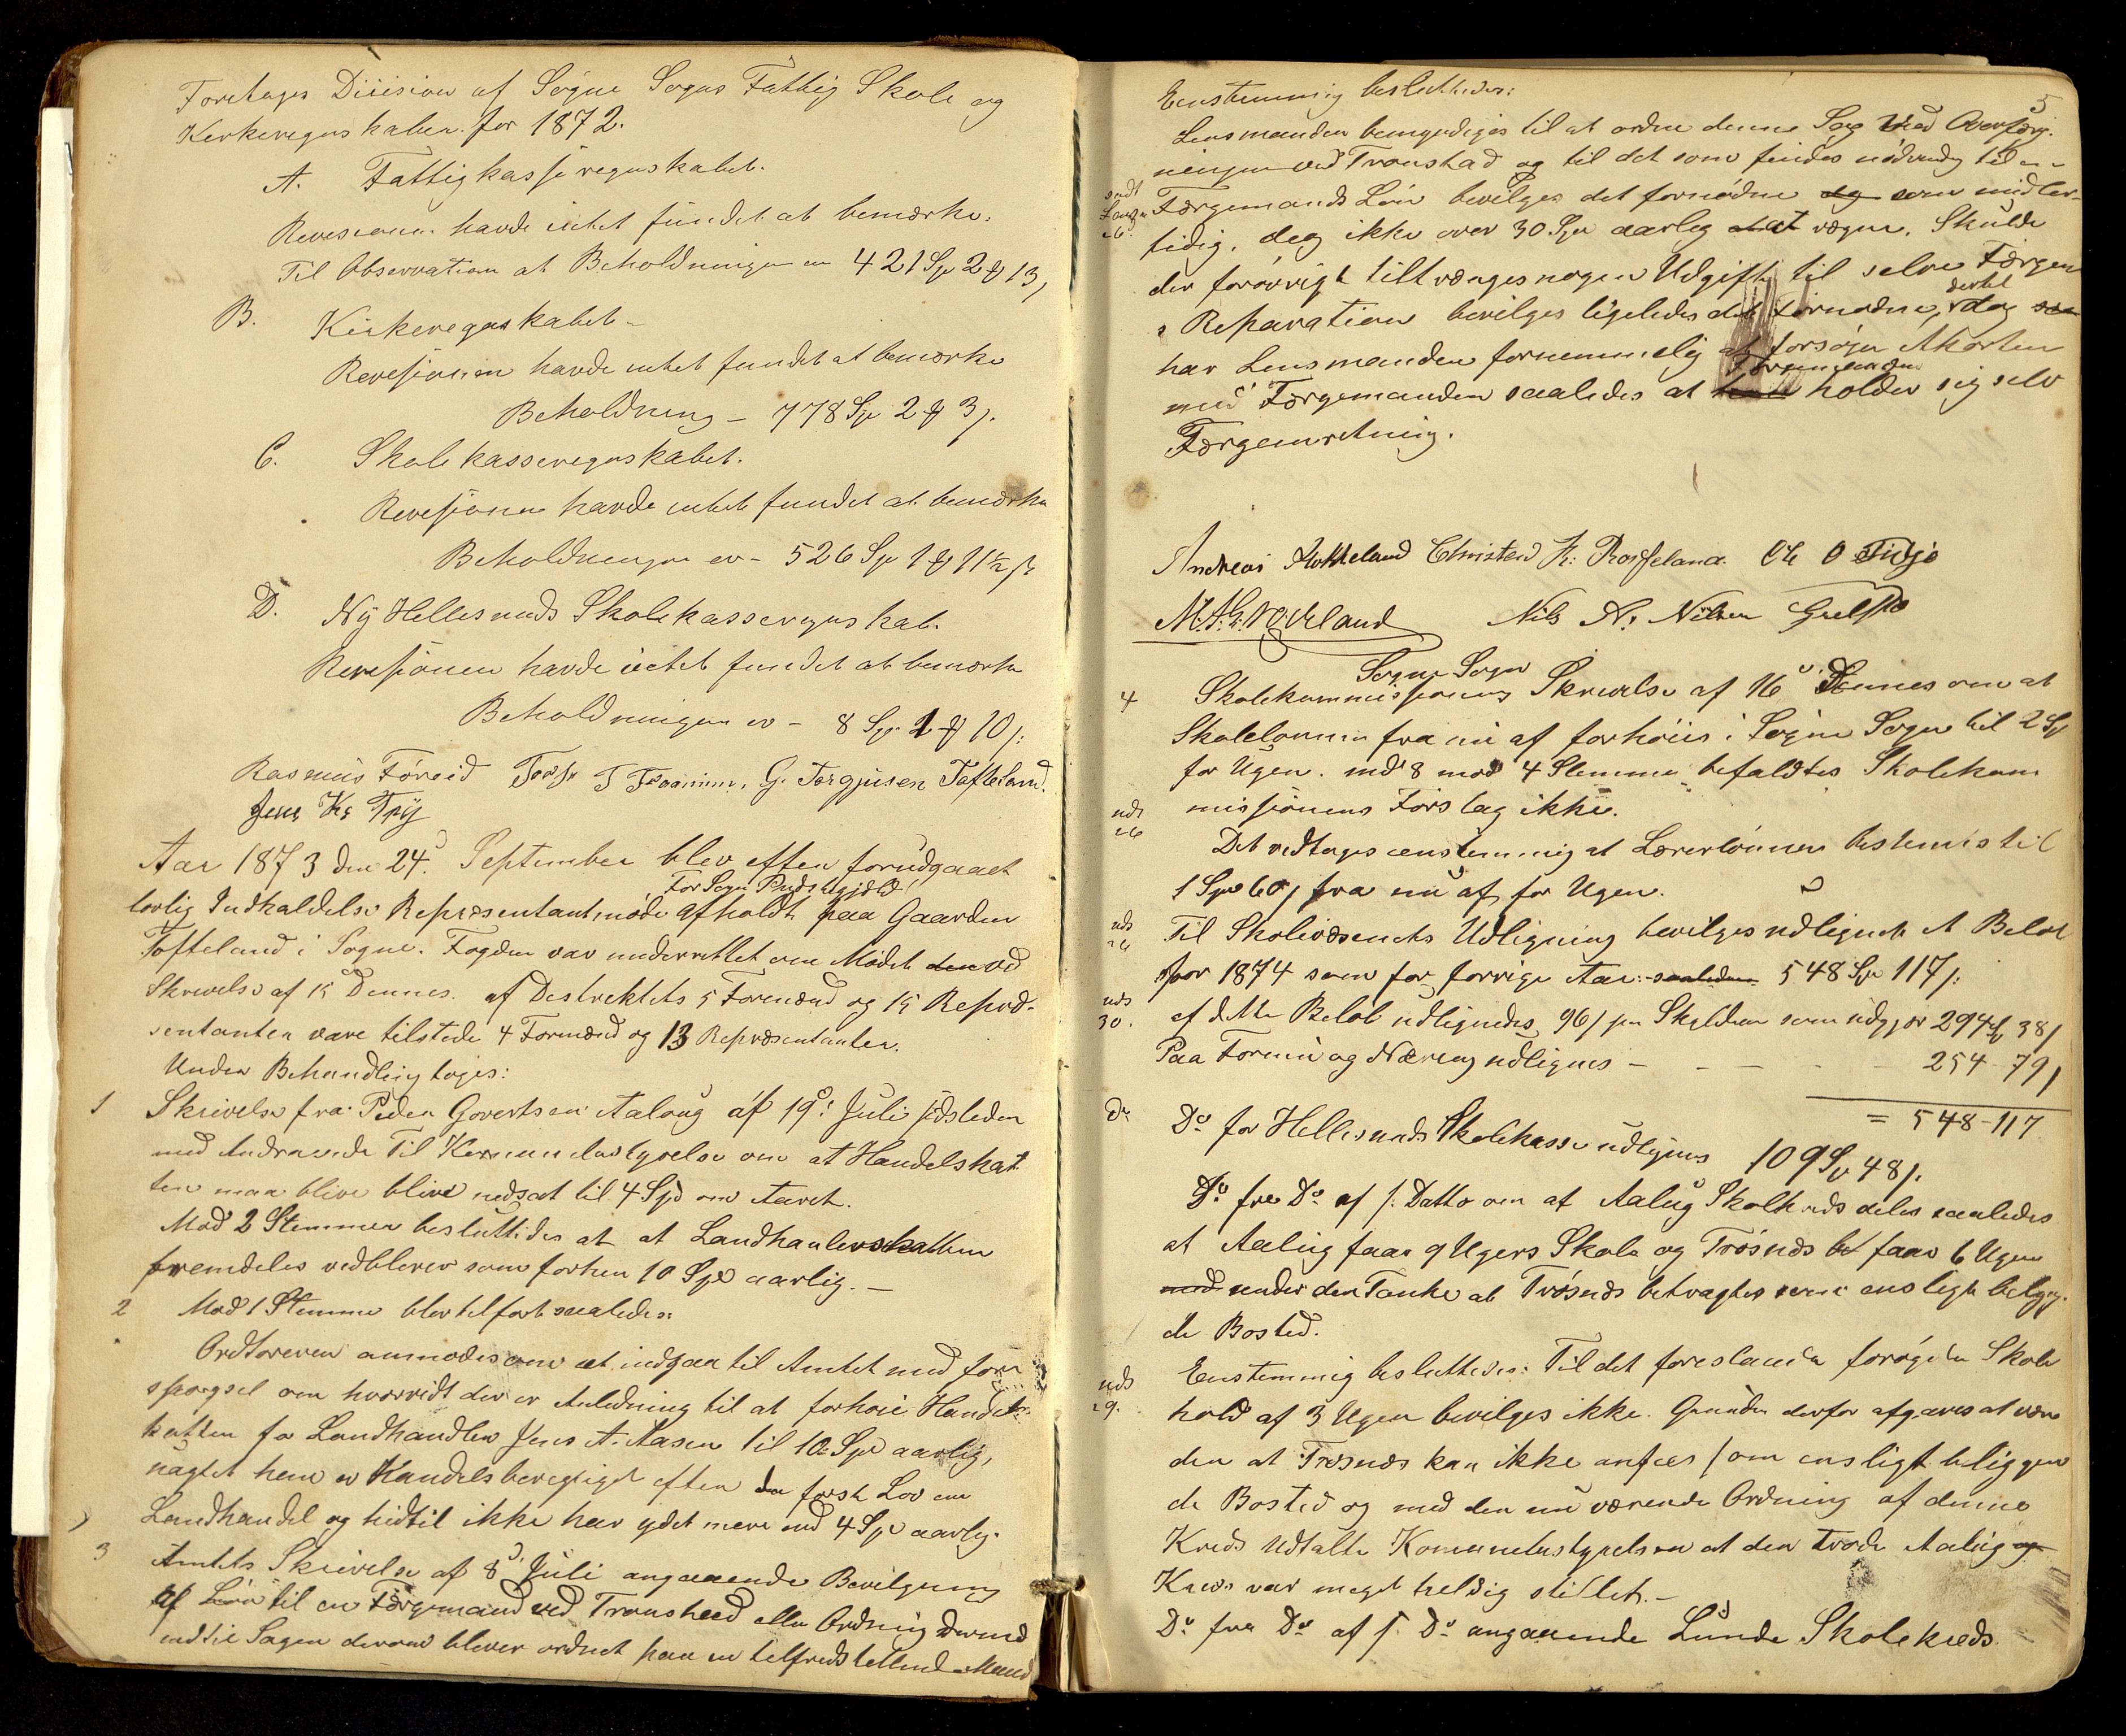 Foretages Diiision af Søgne Sogns Fattig Skole og
Kerkeregnskaber for 1872.
A. Fattigkasseregnskabet.
Revesionen havde intet fundet at bemærke.
Til Observation at Beholdningen er 421 Spe 2 ₰ 13 /
B. Kirkeregnskabet -
Revesjonen havde intet fundet at bemærke
Beholdning - 778 Spe 2 ₰ 3 /.
C. Skolekasseregnskabet.
Revesjonen havde intet fundet at bemærke
Beholdningen er - 526 Spe 1 ₰ 11½ /
D. Ny Hellesunds Skolekasseregnskab.
Revesjonen havde intet fundet at bemærke
Beholdningen er - 8 Spe 1 ₰ 10 /:
Rasmus Føreid G. Torgjusen Tofteland.
Jens Ks Try
Aar 1873 den 24d. September blev efter forudgaaet
For Søgne Prdstegjeld
lovlig Indkaldelse Repræsentantmøde afholdt paa Gaarden
Tofteland i Søgne. Fogden var underrettet om Mødet ved
Skrivelse af 15 Dennes. af Destrektets 5 Formænd og 15 Repræ-
sentanter vare tilstede 4 Formænd og 13 Repræsentanter.
Under Behandling toges:
1 Skrivelse fra Peder Govertsen Aaløug af 19d: Juli sidsleden
med Andragende Til Kommunebestyrelse om at Handelskat
ten maa blive blive nedsat til 4 Spd om Aaret.
Mod 2 Stemmer besluttedes at at Landhanlerskatten
fremdeles vedblever som forhen 10 Spd aarlig. -
2 Mod 1 Stemme blev tilført saaledes:
Ordføreren anmodes om at indgaa til Amtet med fore
spørgsel om hvorvidt der er Anledning til at forhøie Handels
katten for Landhandler Jens A. Aasen til 10 Spd aarlig,
uagtet han er Handelsberegtiget efter den første Lov om
Landhandel og hidtil ikke har ydet mere end 4 Spd aarlig.
3 Amtets Skrivelse af 8d. Juli angaaende Bevilgning
af Løn til en Færgemand ved Transteed eller Ordning dermed
indtil Sagen derom blever ordnet paa en telfredstellende Maade
5
Eenstemmig besluttedes:
Lensmanden bemyndiges til at ordne denne Sag med Overfærg-
ningen ved Tronstad og til det som findes nødvendig til en
Færgemands Løn bevilges det fornødne dog som midler-
tidig, dog ikke over 30 Spe aarlig at at regne. Skulde
der forøvrigt tiltrænges nogen Udgift til selve Færgen
dertil
s Reparation bevilges ligeledes det fornødne, dog
har Lensmanden fornemmelig at forsøge Akorten
Færgemanden
med Færgemanden saaledes at holder sig selv
Færgeinretning.
Christen K: Rosseland. Ole O Tidsjø
Nils N. Nilsen
Søgne Sogn
4 Skolekommissjonens Skrivelse af 16d Dennes om at
Skolelønnen fra nu af forhøiis i Søgne Sogn til 2 Sp
for Ugen. md 8 mod 4 Stemmer befaldtes Skolekom
missjonens Forslag ikke.
uds
26
Det vedtages eenstemmig at Lærerlønnen bestemes til
1 Spe 60 / fra nu af for Ugen.
uds
26
Til Skolevæsenets Udligning bevilges udlignet et Beløb
for 1874 som for forrige Aar: saaledes 548 Spe 117 /:
uds
30.
af dette Beløb udlignedes 96 / pr Skylddaler som udgjør 294 ₰ 38 /
Paa Formue og Næring udlignes - - - - 254 - 79 /
= 548 - 117
Do
Do for Hellesunds Skolekasse udlignes 109 Sp 48 /.
Do fra Do af s. Datto om at Aaløg Skolkreds deles saaledes
at Aaløg faar 9 Ugers Skole og Trøsnds faar 6 Uger
med under den Tanke at Trøsnds betragtes som ensligt belig-
de Bosted.
uds
29.
Eenstemmig besluttedes: Til det foreslaaede forøgede Skole
hold af 3 Uger bevilges ikke. Grunden derfor afgaves at være
den at Trøsnds kan ikke ansees som ensligt beliggen
de Bosted og med den nu værende Ordning af denne
Kreds Udtalte Komunebestyrelsen at den troede Aaløg
Kreds var meget heldig stillet. -
Do fra Do af s. Do angaaende Lunde Skolekreds.